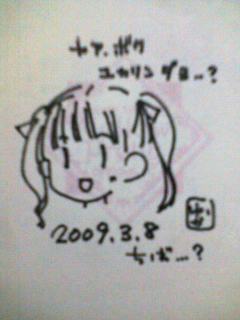 ヤア、ボク
ユカリンダヨ…?
2009.3.8
ちば…?